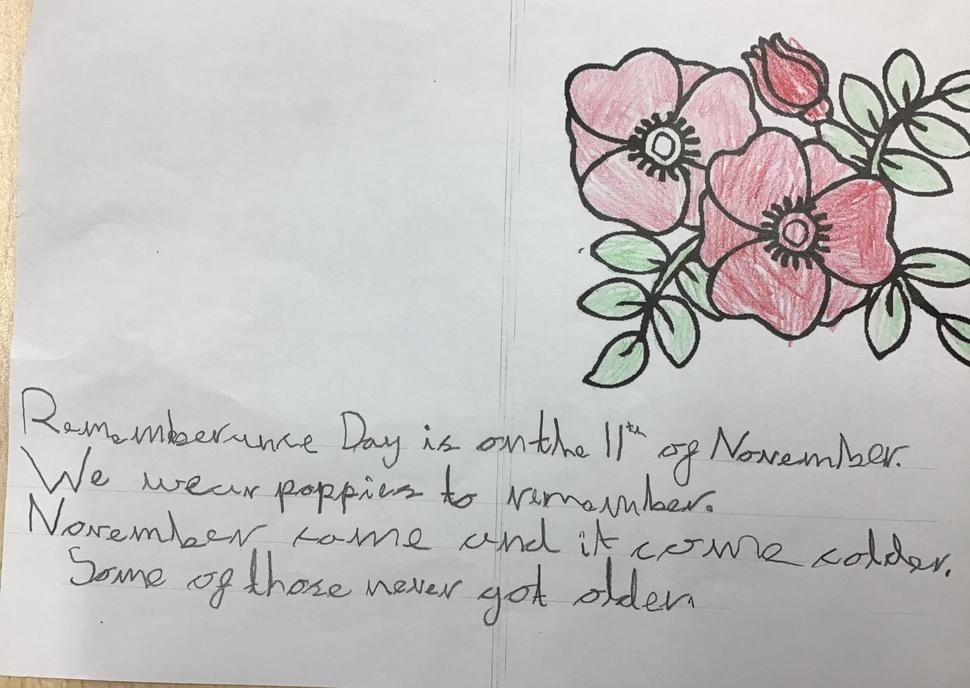 Rememberance Day is on the 11th of November.
We wear poppies to remember.
November came and it come colder.
Some of those never got older.